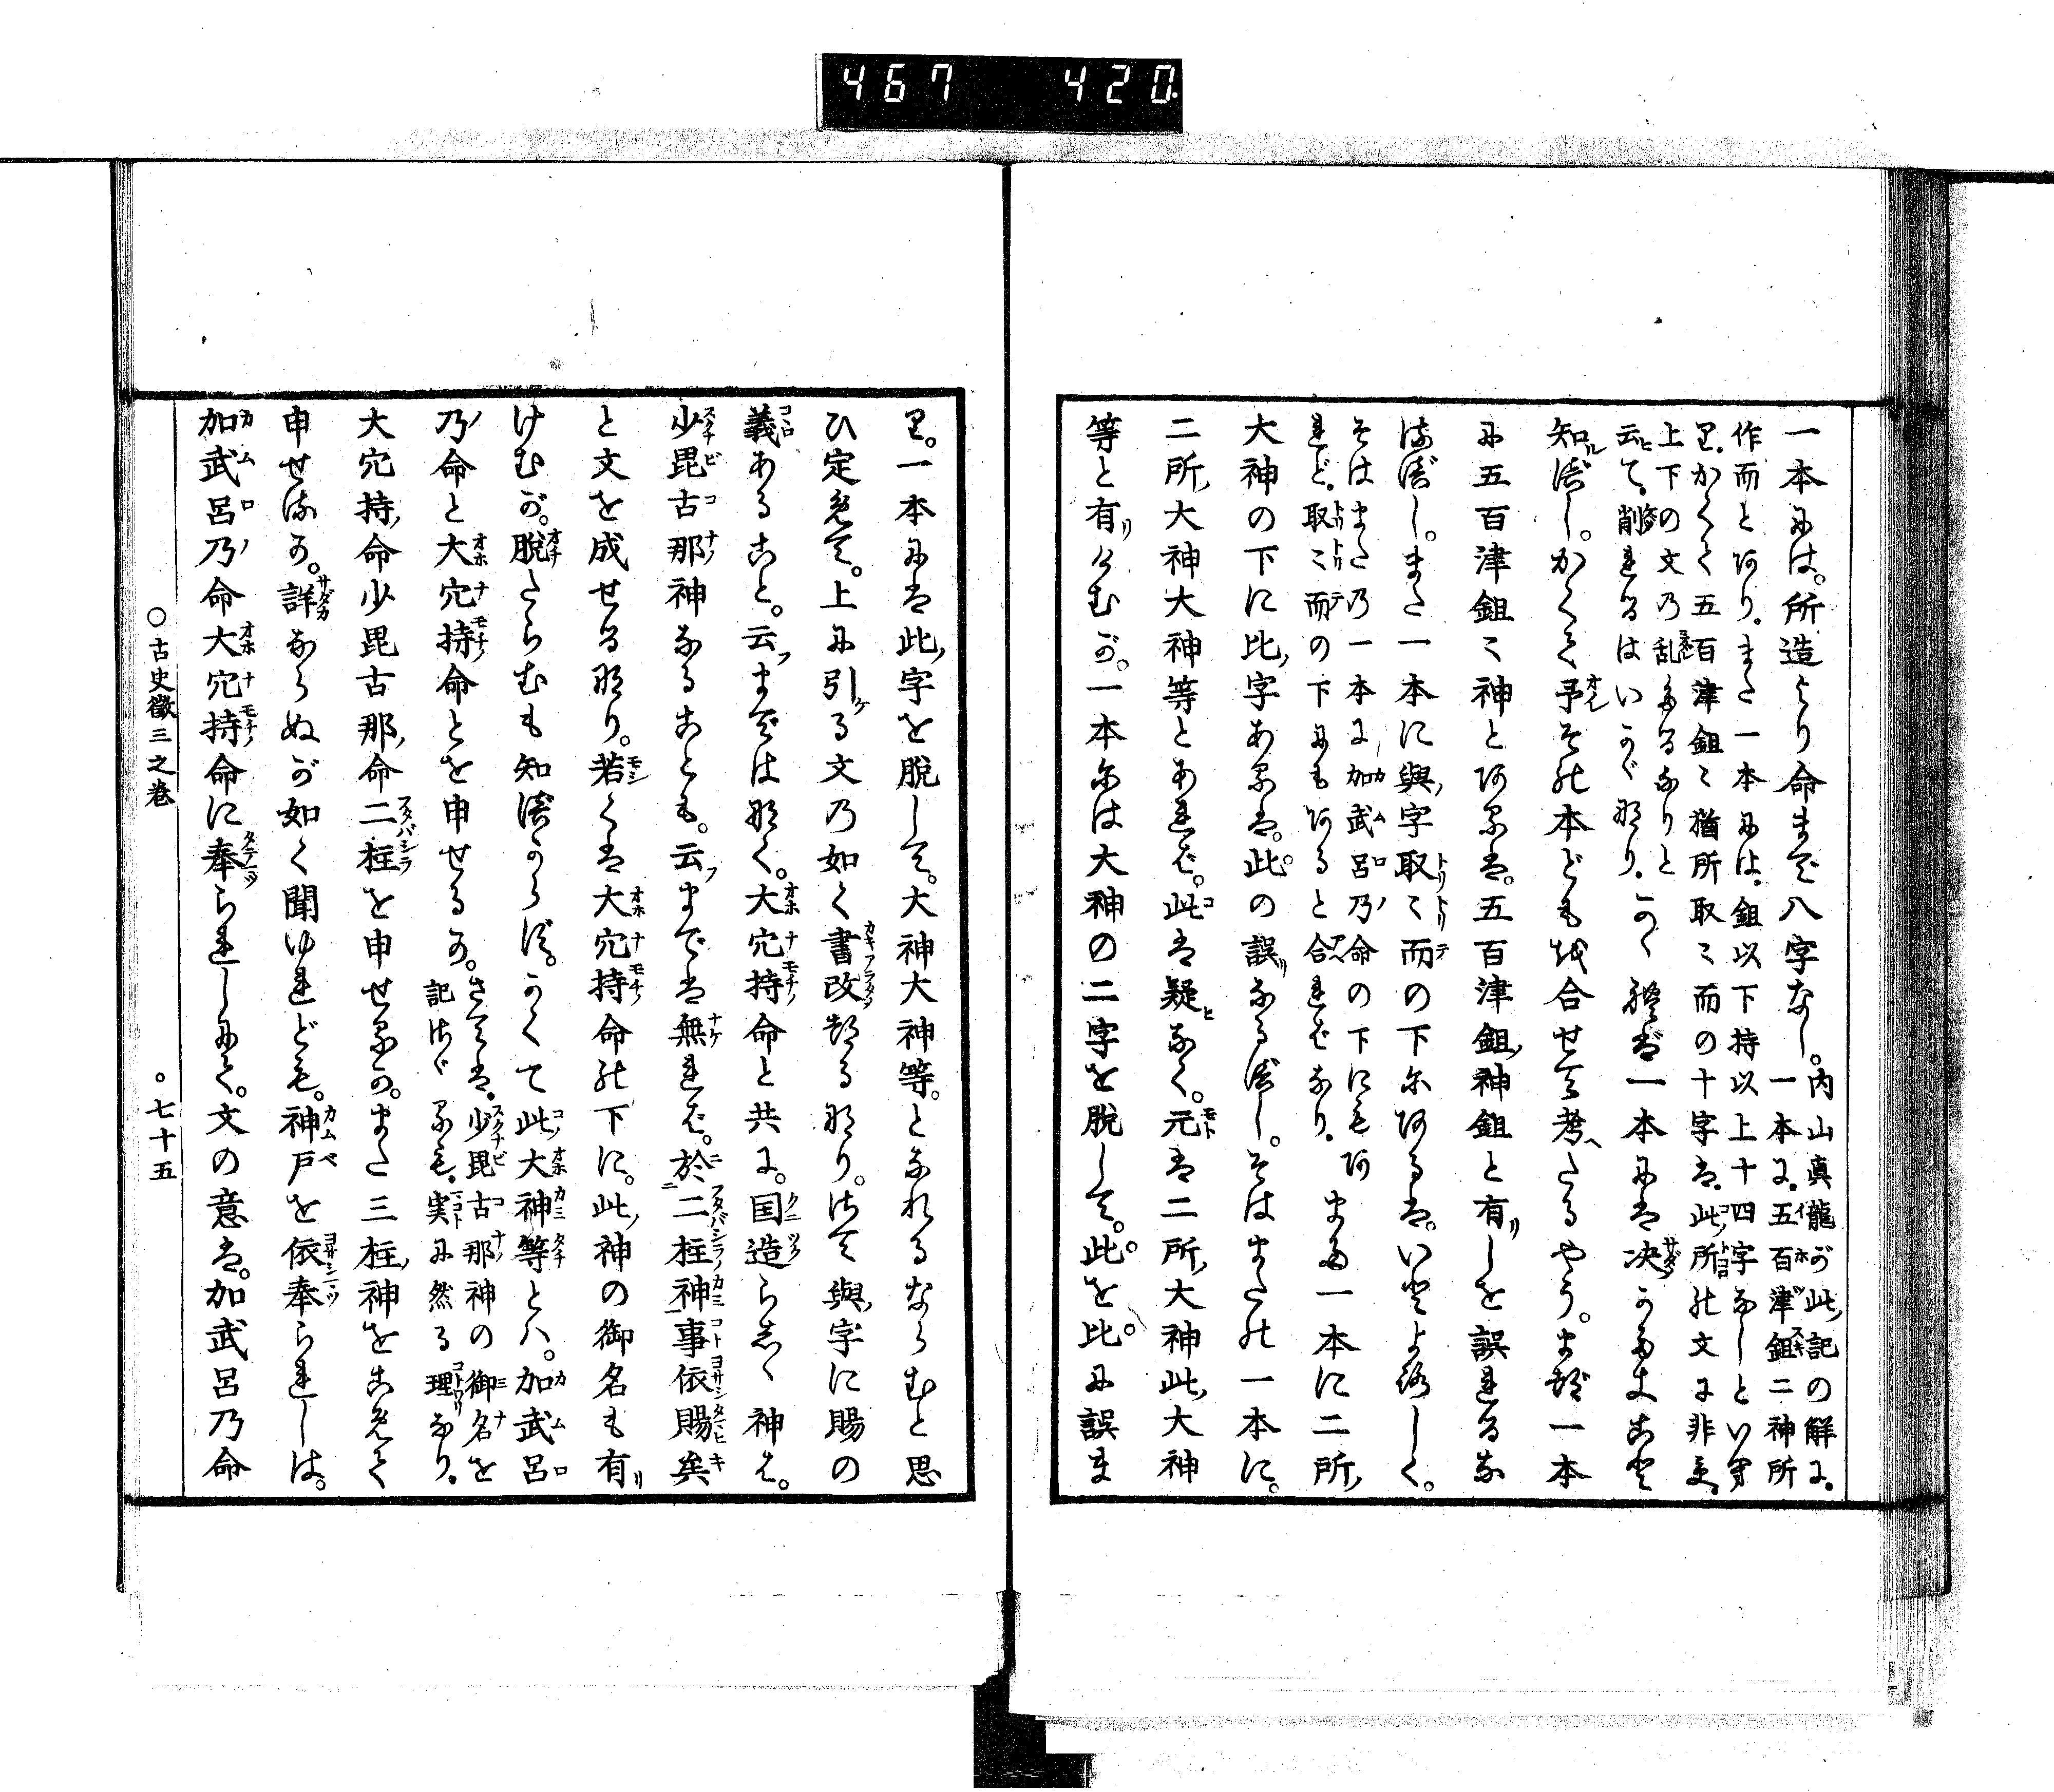 467 420
一本には。所造より命まで八字なし。内山真龍が此記の解に。
一本に。五百津鉏二神所
作而とあり。また一本には。鉏以下持以上十四字なしといへ
り。かくて五百津鉏々猶所取々而の十字は。此所の文に非ず。
上下の文の乱たるなりと
云て。削れるはいかゞなり。
一本には決
知べし。かくて予その本どもを合せて考へたるやう。まづ一本
に五百津鉏々神とあるは。五百津鉏神鉏と有しを誤れるな
るべし。また一本に與字取々而の下にあるは。いとよろしく。
そはまたの一本に加武呂乃命の下にもあ
れど。取々而の下にもあると合ればなり。
また一本に二所
大神の下に比字あるは。此の誤なるべし。そはまたの一本に。
二所大神大神等とあれば。此は疑なく。元は二所大神此大神
等と有けむが。一本には大神の二字を脱して。此を比に誤ま
り。一本には此字を脱して。大神大神等。となれるならむと思
ひ定めて。上に引る文の如く書改つる なり。さて與字に賜の
義あること。云まではなく。大穴持命と共に。国造らしゝ神は。
少毘古那神なることも。云までは無れば。於二柱神事依賜矣
と文を成せるなり。若くは大穴持命の下に。此神の御名も有
けむが。脱たらむも知べからず。かくて此大神等とは。加武呂
乃命と大穴持命とを申せるか。
さては。少毘古那神の御名を
記さゞるも。実に然る理なり。
大穴持命少毘古那命二柱を申せるか。また三柱神をこめて
申せるか。詳ならぬが如く聞ゆれども。神戸を依奉られしは。
加武呂乃命大穴持命に奉られしにて。文の意は。加武呂乃命
○古史徴三之巻 ○七十五